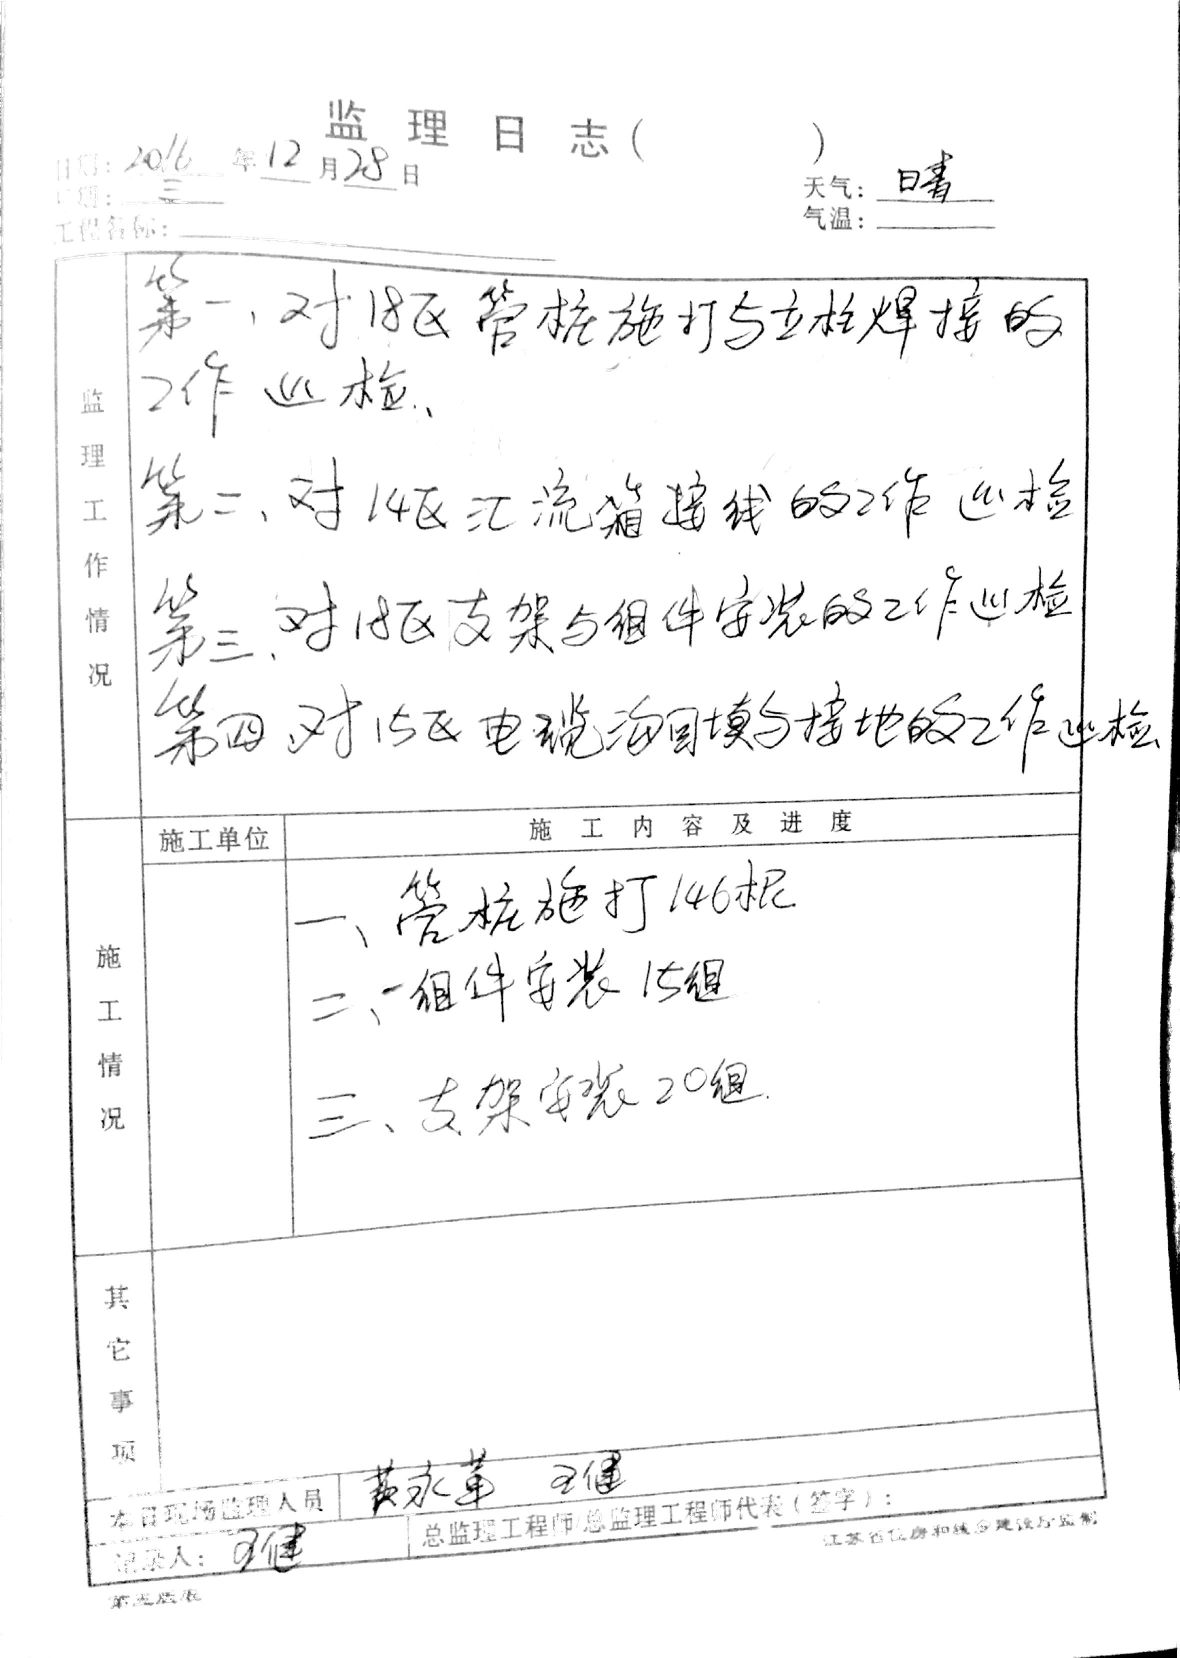 监理日志(  )
日期: 2016 年 12 月 28 日
星期: 三
天气: 晴
气温:
工程名称:
监理工作情况
第一、对18区管桩施打与立柱焊接的
工作巡检、
第二、对14区汇流箱接线的工作巡检
第三、对18区支架与组件安装的工作巡检
第四、对15区电缆沟回填与接地的工作巡检、
施工情况
施工单位
施工内容及进度
一、管桩施打146根
二、组件安装15组
三、支架安装20组.
其它事项
本日现场监理人员 黄永革 王健
记录人: 王健
总监理工程师/总监理工程师代表(签字):
江苏省住房和城乡建设厅监制
第五版表